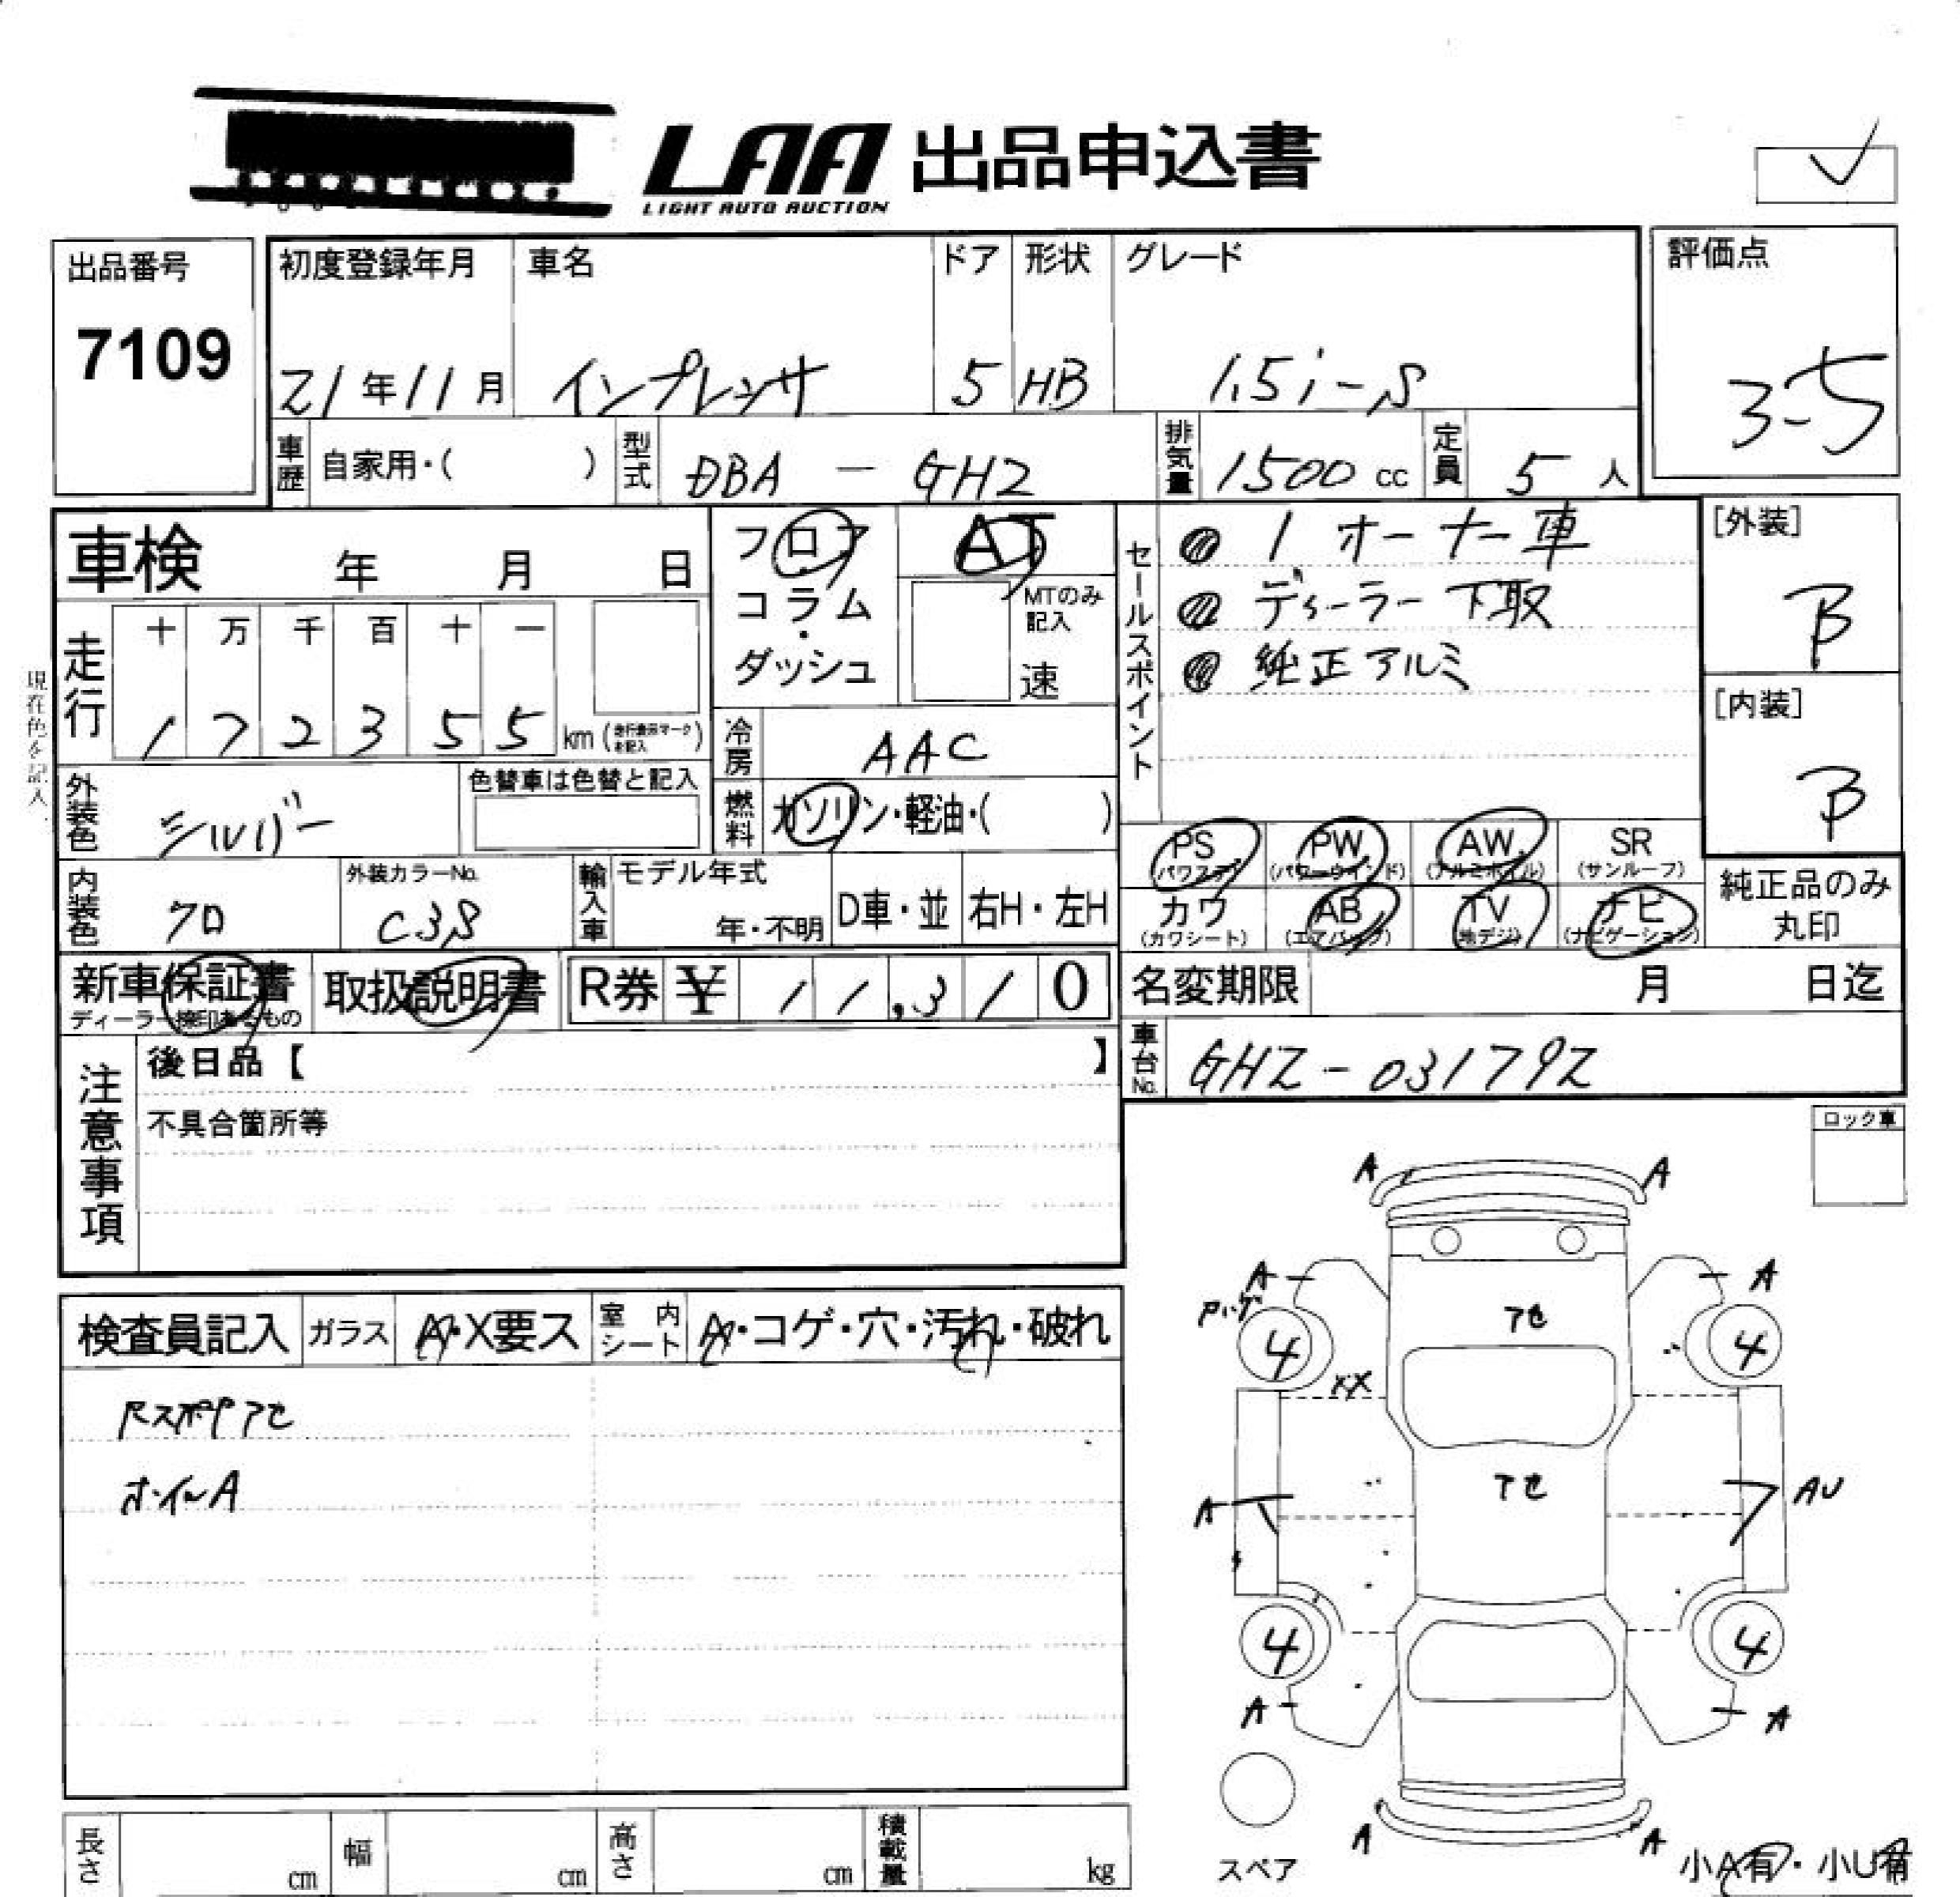 LAA 出品申込書
LIGHT AUTO AUCTION
出品番号
7109
初度登録年月
21年11月
車名
インプレッサ
ドア
5
形状
HB
グレード
1.5i-S
評価点
3-5
車歴 自家用・( )
型式 DBA - GH2
排気量 1500 cc
定員 5 人
車検 年 月 日
フロア
コラム
・
ダッシュ
AT
MTのみ
記入
速
セールスポイント
1オーナー車
ディーラー下取
純正アルミ
[外装]
B
[内装]
B
現在色を記入
走行
十 万 千 百 十 一
1 7 2 3 5 5 km
冷房 AAC
燃料 ガソリン・軽油・( )
外装色 シルバー
色替車は色替と記入
内装色 クロ
外装カラーNo.
C3S
輸入車
モデル年式
年・不明
D車・並
右H・左H
PS
(パワステ)
PW
(パワーウインド)
AW
(アルミホイル)
SR
(サンルーフ)
カワ
(カワシート)
AB
(エアバッグ)
TV
(地デジ)
ナビ
(ナビゲーション)
純正品のみ
丸印
新車保証書
取扱説明書
R券 ¥ 11,310
名変期限 月 日迄
車台No. GH2-031792
注意事項
後日品【 】
不具合箇所等
ロック車
検査員記入
ガラス A・X要ス
室内シート A・コゲ・穴・汚れ・破れ
ホイルA
A A
A A
4 4
XX
A AU
4 4
A A
A A
スペア
小A有・小U有
長さ cm
幅 cm
高さ cm
積載量 kg